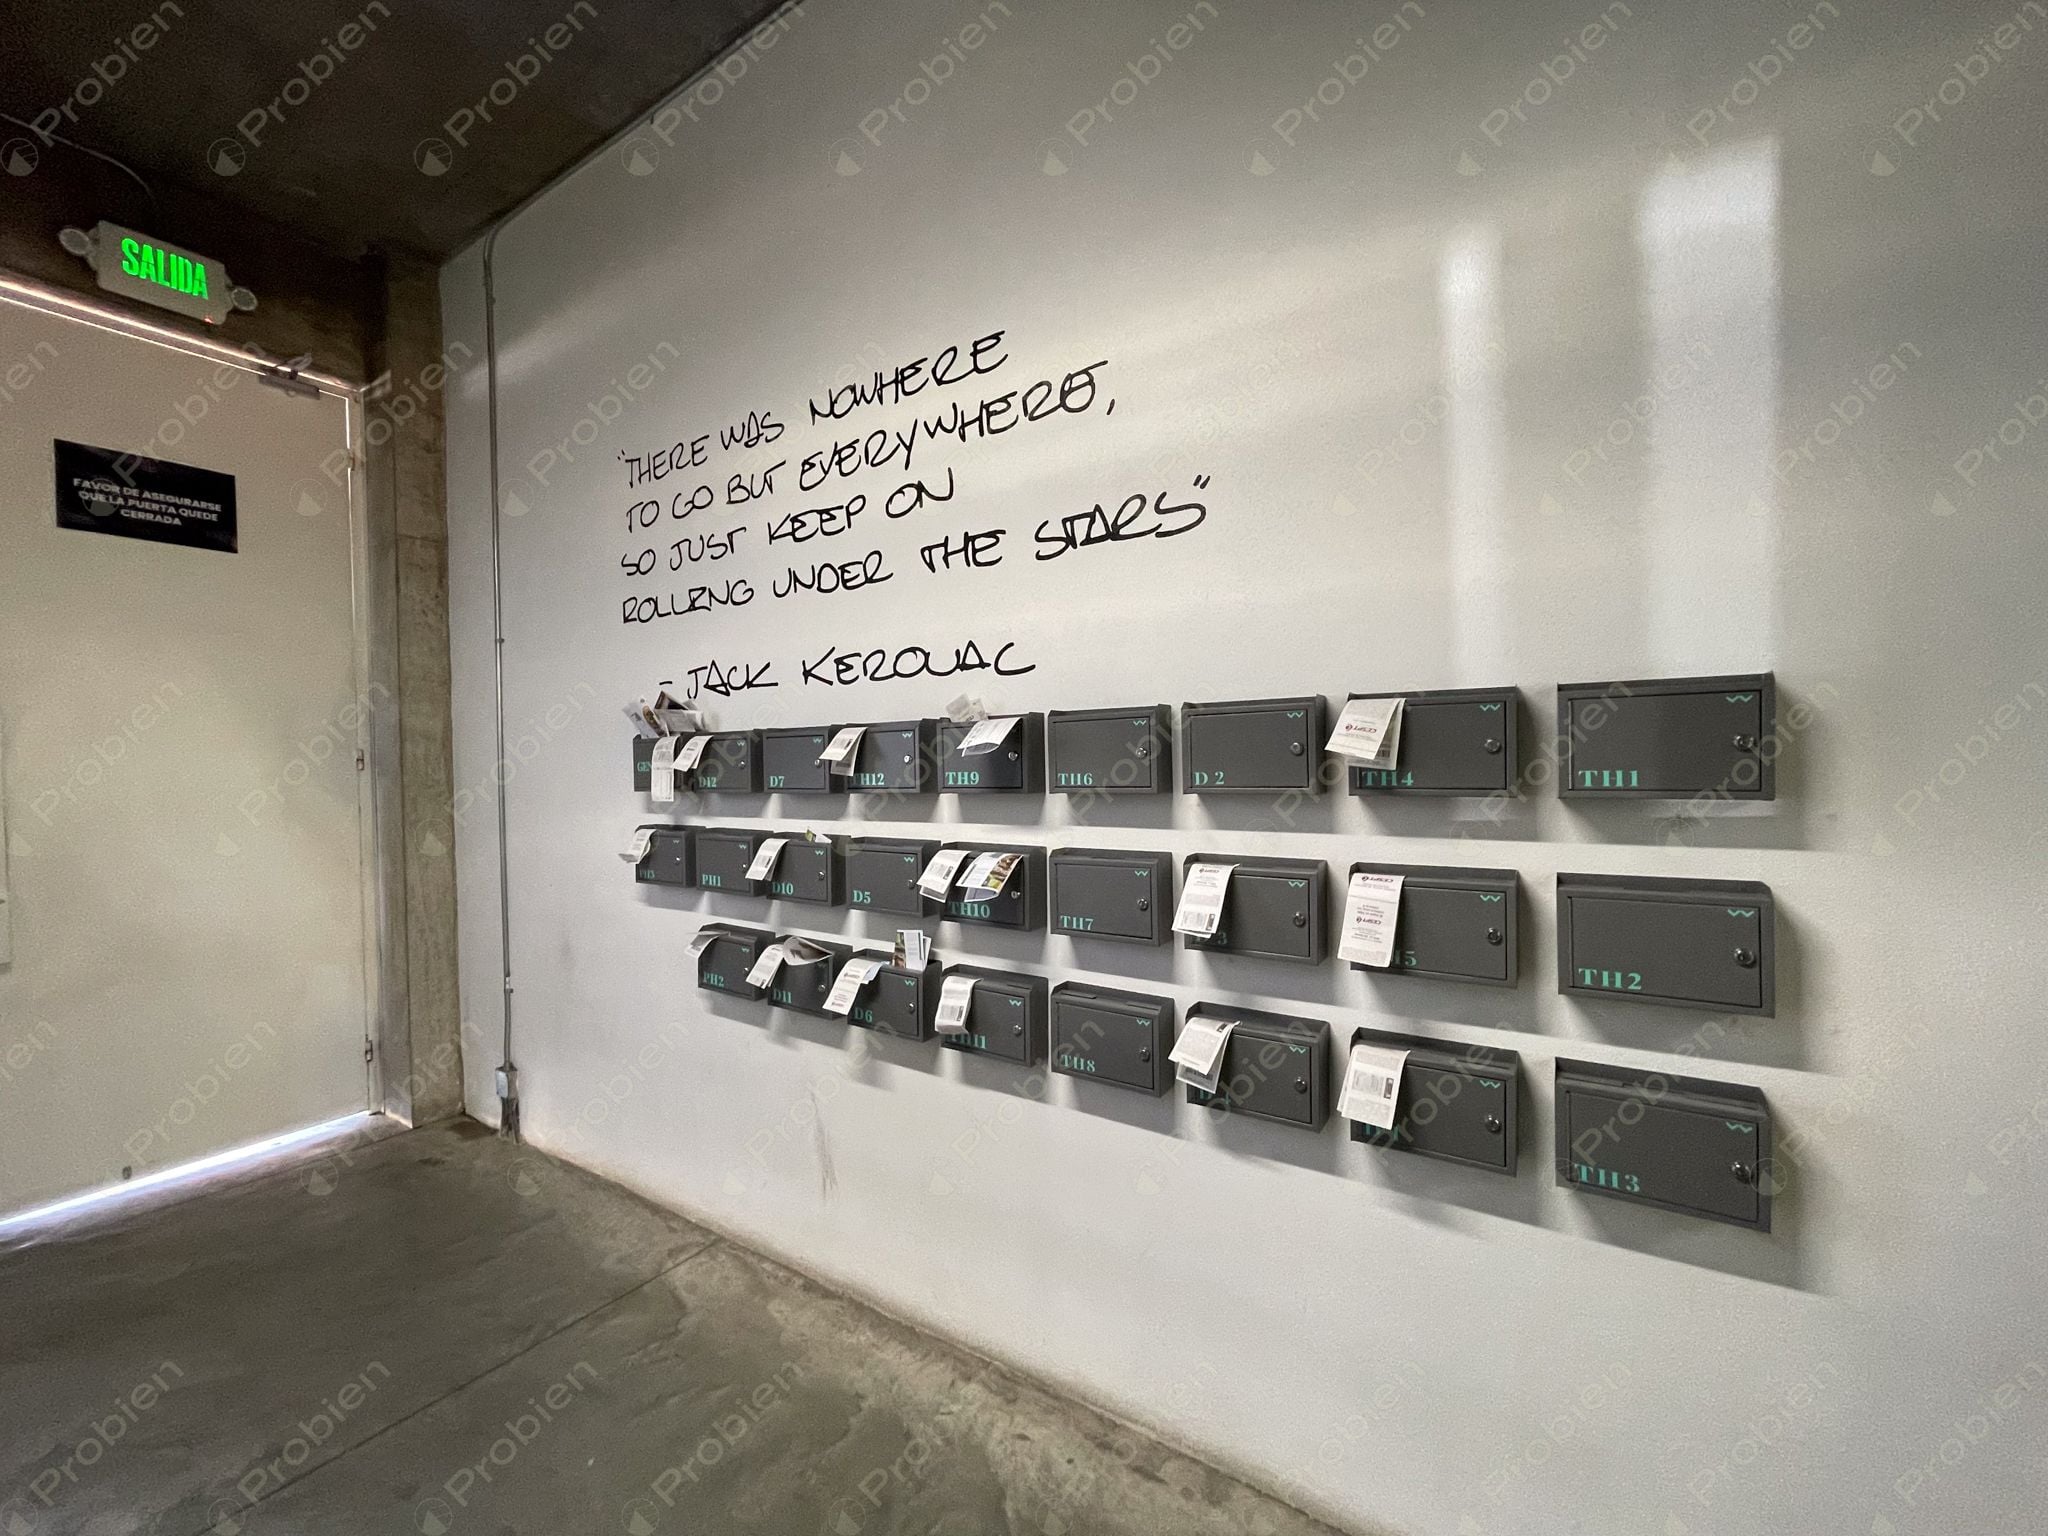 SALIDA
FAVOR DE ASEGURARSE
QUE LA PUERTA QUEDE
CERRADA
"THERE WAS NOWHERE
TO GO BUT EVERYWHERE,
SO JUST KEEP ON
ROLLING UNDER THE STARS"
- JACK KEROUAC
GEN
D12
D7
TH12
TH9
TH6
D 2
TH4
TH1
PH3
PH1
D10
D5
TH10
TH7
3
15
TH2
PH2
D11
D6
TH11
TH8
TH3
CESPT
CESPT
CESPT
Probien